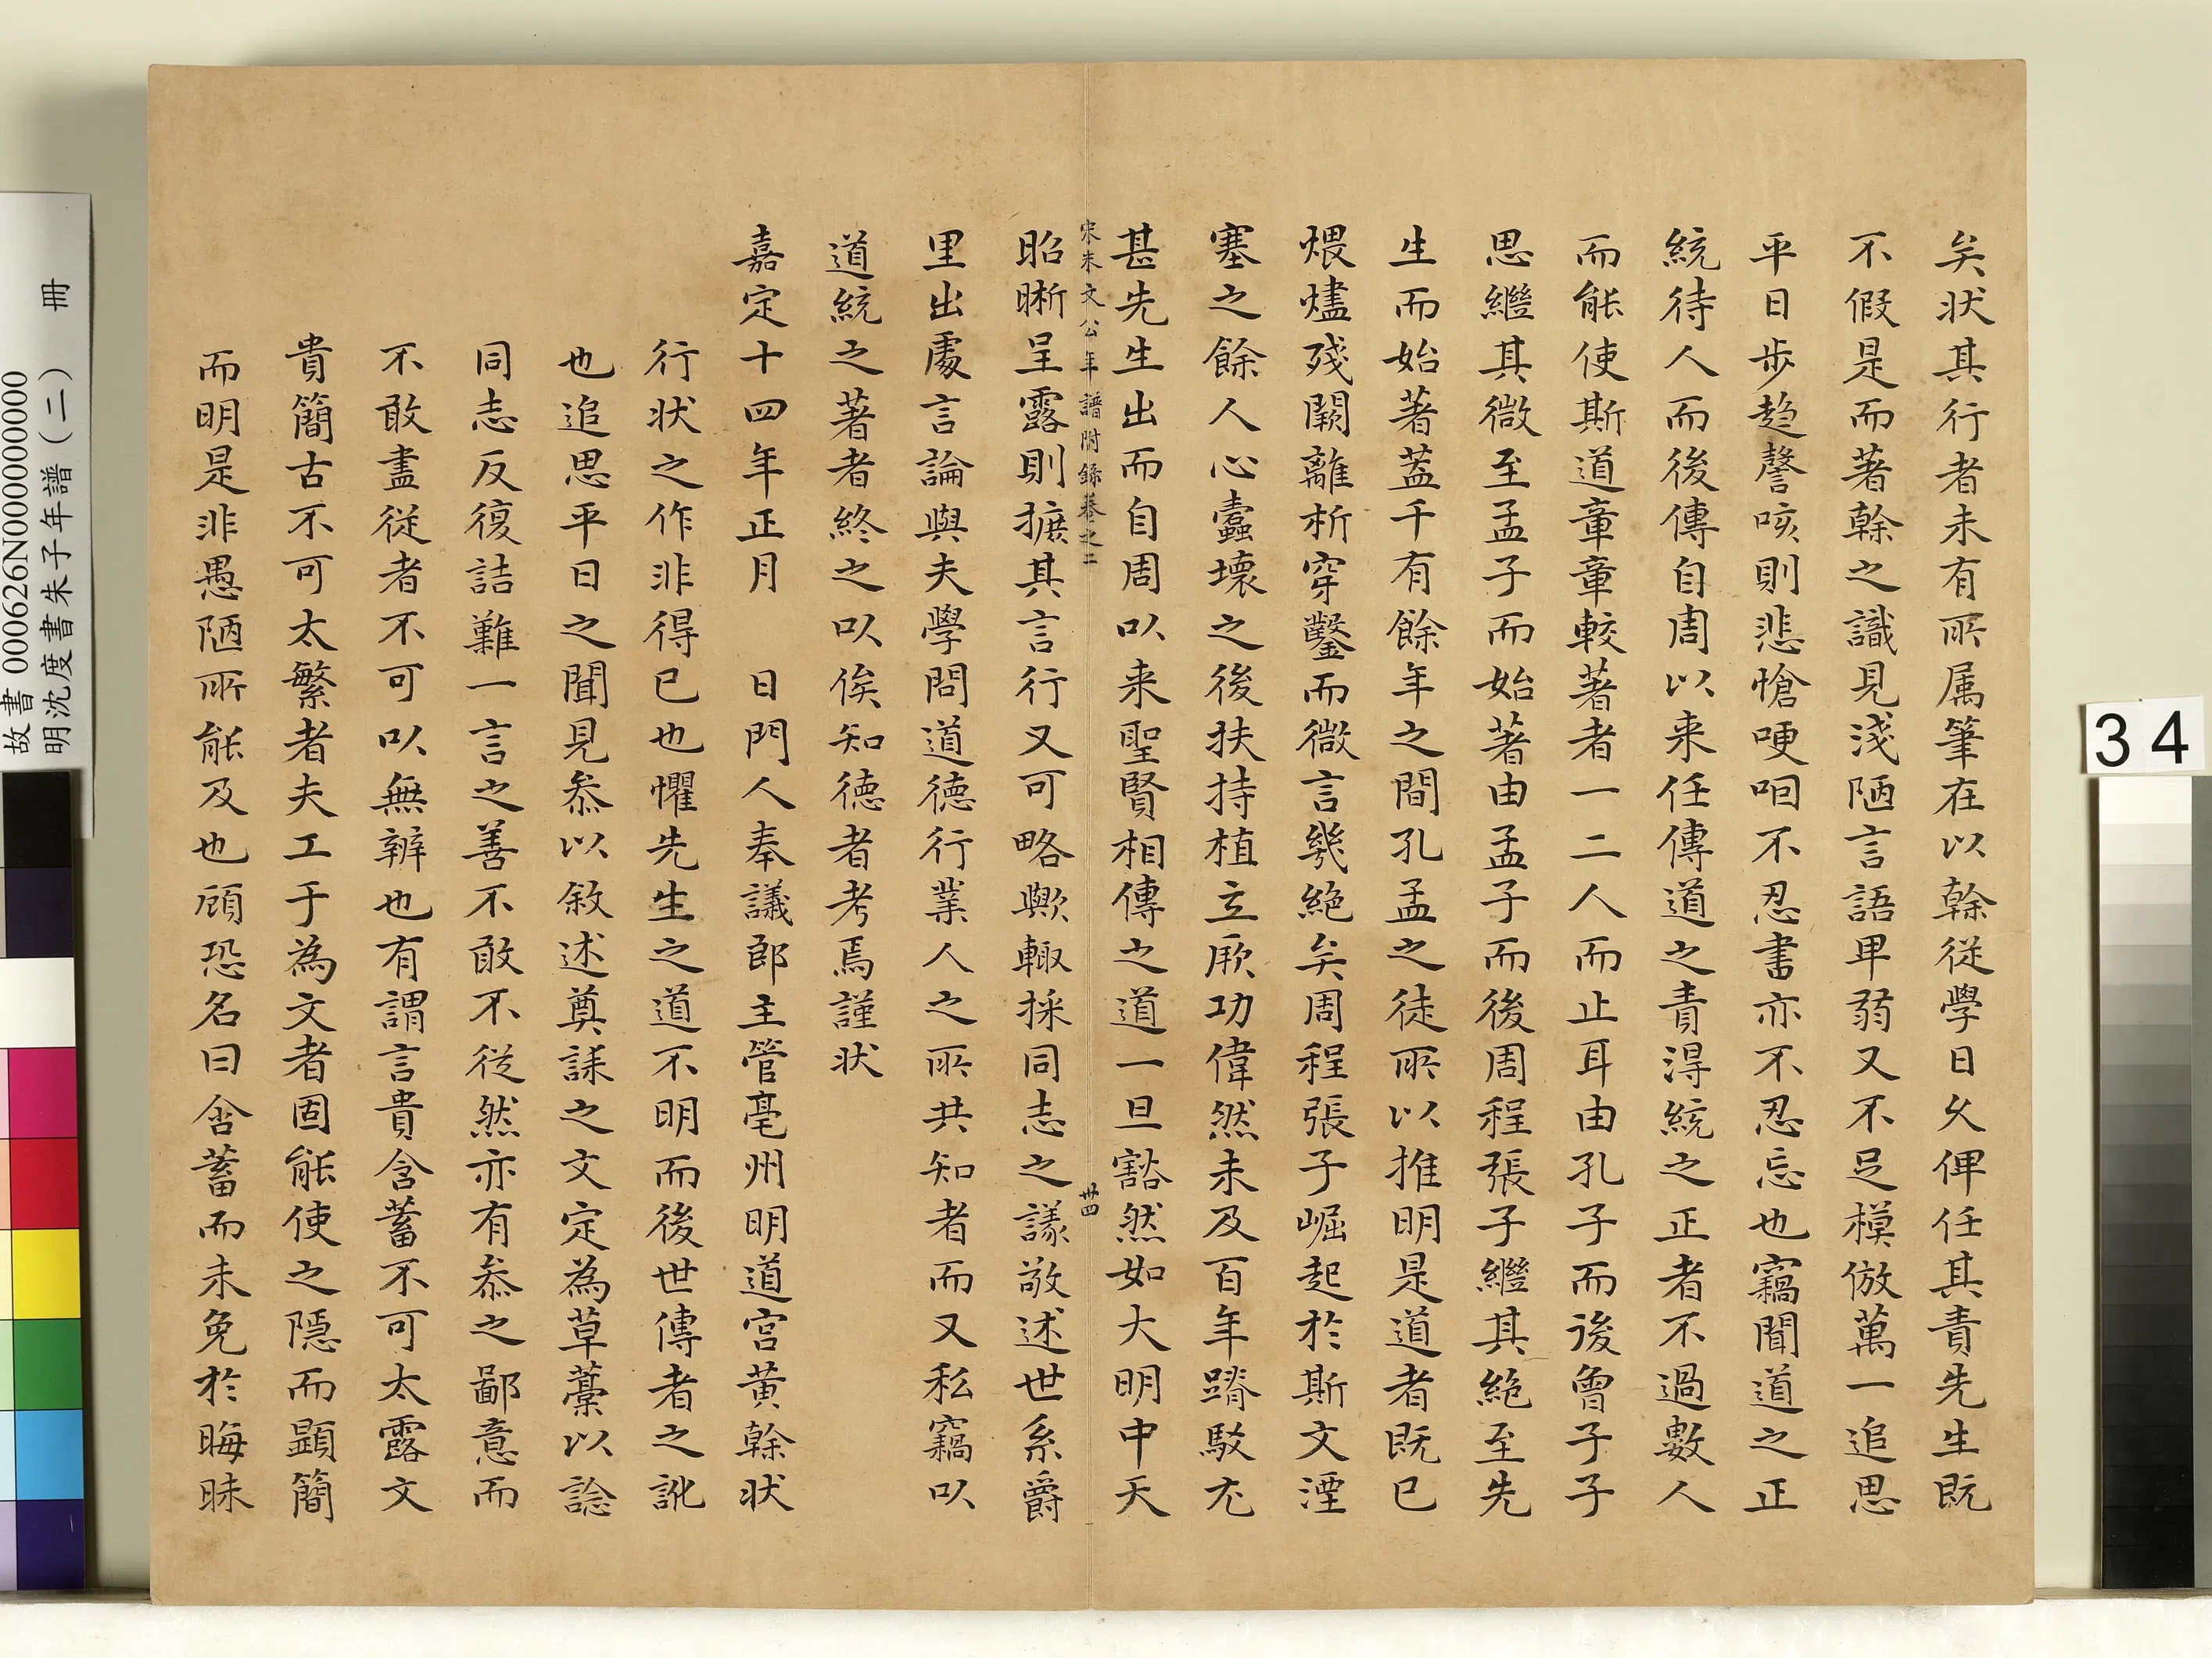 矣狀其行者未有所属筆在以榦從學日久俾任其責先生既
不假是而著榦之識見淺陋言語卑弱又不足模倣萬一追思
平日步趋謦咳則悲愴哽咽不忍書亦不忍忘也竊聞道之正
統待人而後傳自周以来任傳道之責得統之正者不過數人
而能使斯道章章較著者一二人而止耳由孔子而後曾子子
思繼其微至孟子而始著由孟子而後周程張子繼其絶至先
生而始著蓋千有餘年之間孔孟之徒所以推明是道者既已
煨燼殘闕離析穿鑿而微言幾絶矣周程張子崛起於斯文湮
塞之餘人心蠹壞之後扶持植立厥功偉然未及百年踳駁尤
甚先生出而自周以来聖賢相傳之道一旦豁然如大明中天
宋朱文公年譜附錄卷之二 卅四
昭晰呈露則摭其言行又可略歟輙採同志之議敬述世系爵
里出處言論與夫學問道德行業人之所共知者而又私竊以
道統之著者終之以俟知德者考焉謹狀
嘉定十四年正月 日門人奉議郎主管亳州明道宫黃榦狀
行狀之作非得已也懼先生之道不明而後世傳者之訛
也追思平日之聞見叅以敘述奠誄之文定為草藁以諗
同志反復詰難一言之善不敢不從然亦有叅之鄙意而
不敢盡從者不可以無辨也有謂言貴含蓄不可太露文
貴簡古不可太繁者夫工于為文者固能使之隱而顕簡
而明是非愚陋所能及也顧恐名曰含蓄而未免於晦昧
故書 000626N000000000
明沈度書朱子年譜（二） 冊
34